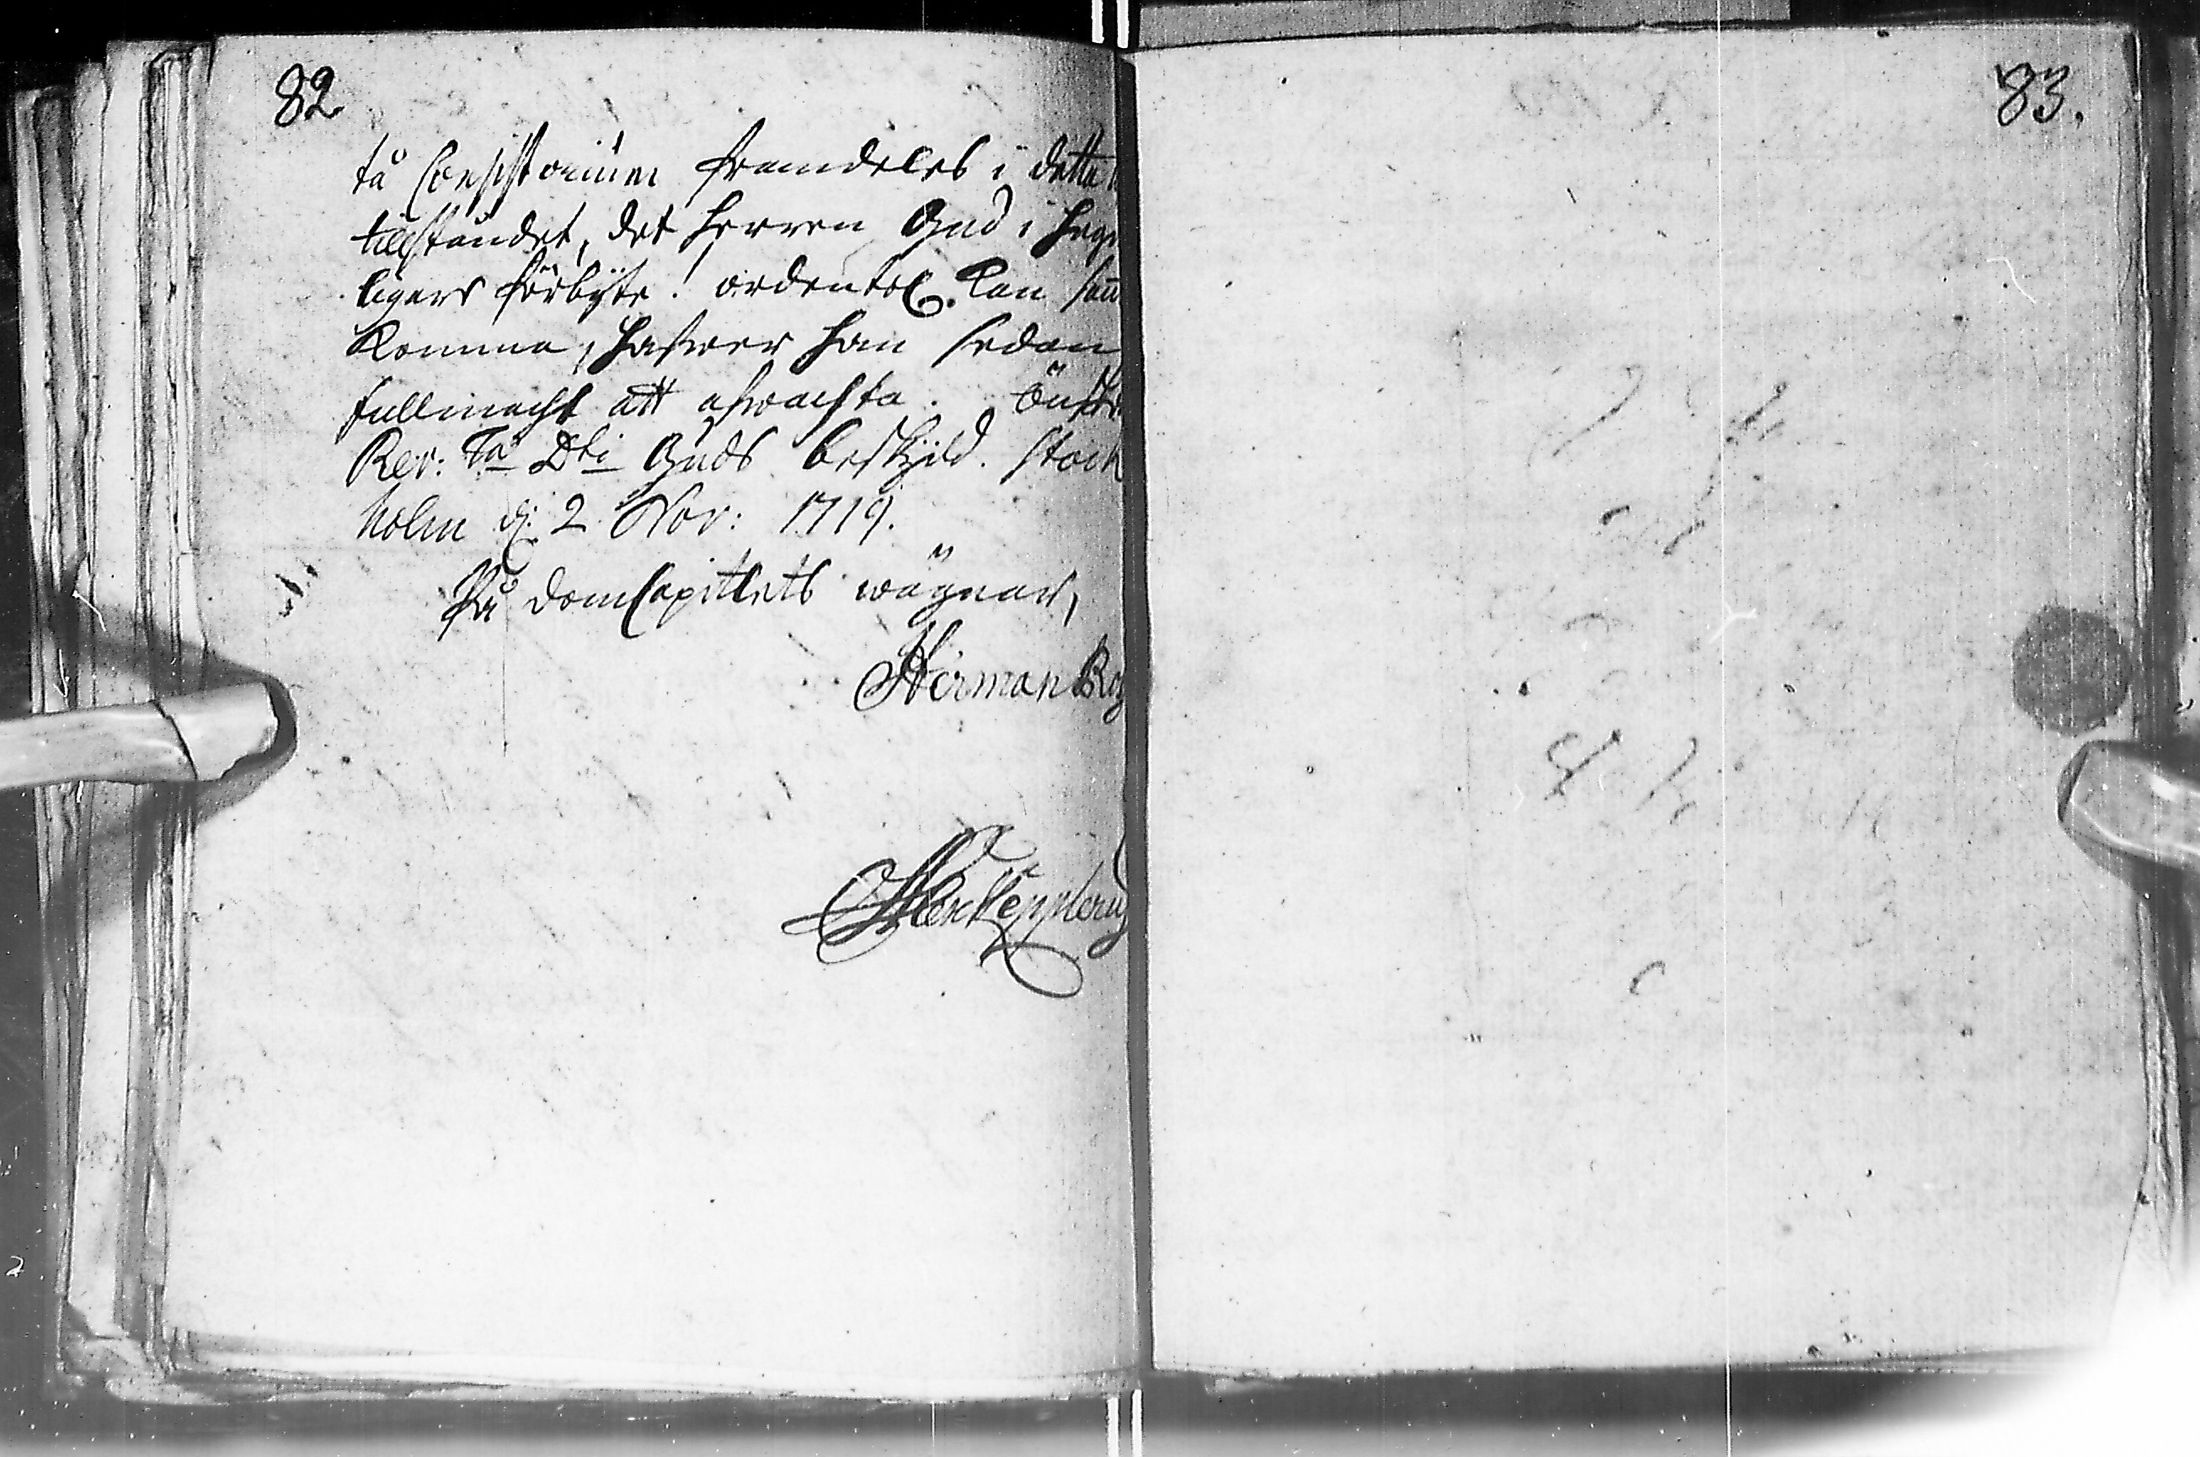 82
tå Consistorium framdeles i detta
tillståndet, det Herren Gud i
ligare förbyte! ordentel. kan
komma, hafwer han sedan
fullmacht att afwachta. Önsk
Rev: Ta Dti Guds beskydd. Stock
holm d: 2 Nov: 1719.
På DomCapitlets wägnar,
Herman
83.